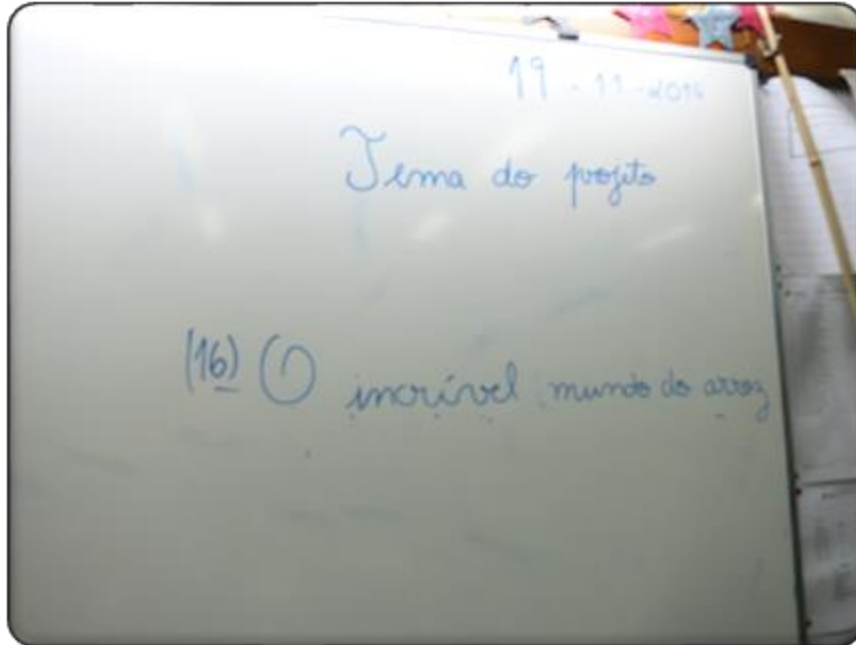 19-11-2014
Tema do projeto
(16) O incrível mundo do arroz